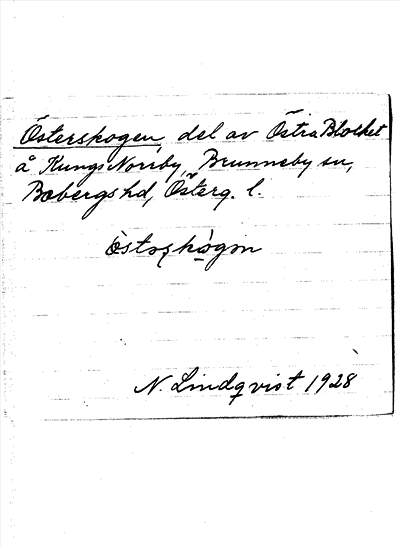 Österskogen, del av Östra Blocket
å Kungs Norrby, Brunneby sn,
Bobergs hd, Österg. l.
N. Lindqvist 1928